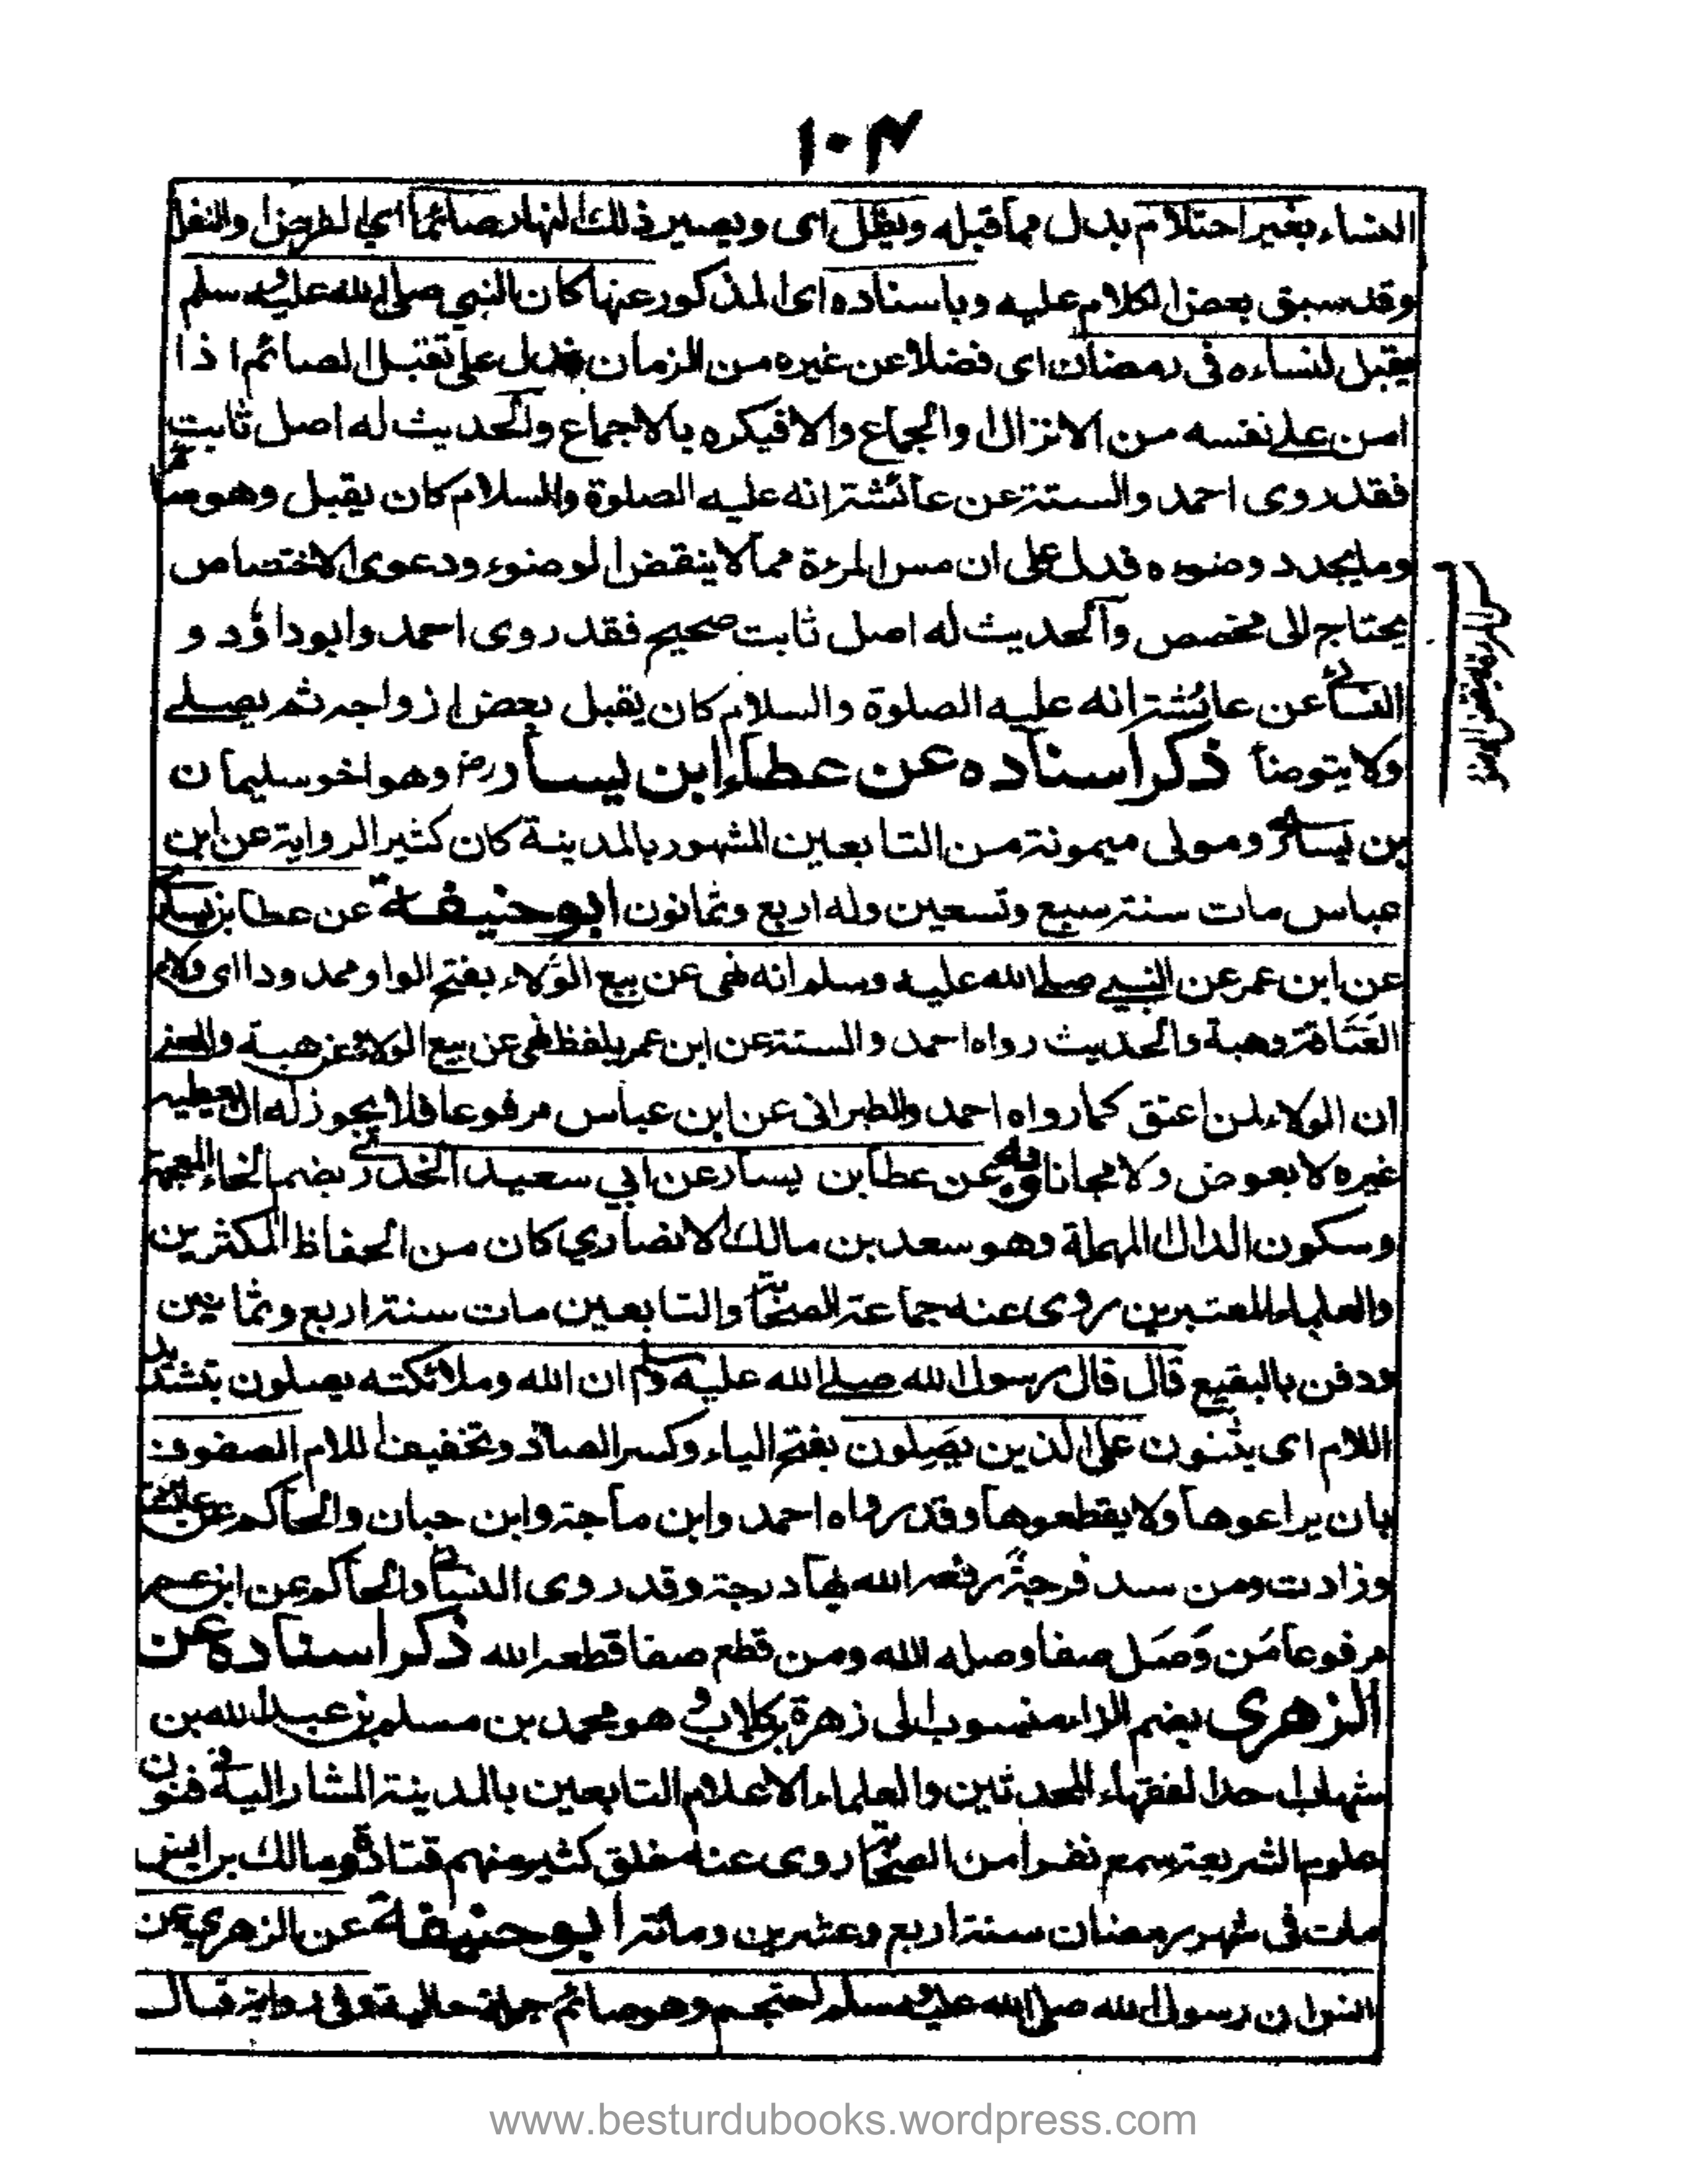 ١٠٣
النساء بغير احتلام بدل مما قبله ويظل اى ويصير ذلك النهار صائما اي الفرض او النفل
وقد سبق بعض الكلام عليه وباسناده اى المذكور عنها كان النبي صلى الله عليه وسلم
يقبل لنساءه فى رمضان اى فضلا عن غيره من الزمان فدل على تقبيل الصائم اذا
امن على نفسه من الانزال او الجماع والا فيكره بالاجماع والحديث له اصل ثابت
فقد روى احمد والستة عن عائشة انه عليه الصلوة والسلام كان يقبل وهو صائم
وما يجدد وضوءه فدل على ان مس المرءة مما لا ينقض الوضوء ودعوى الاختصاص
يحتاج الى مخصص والحديث له اصل ثابت صحيح فقد روى احمد وابو داؤد و
النسائى عن عائشة انه عليه الصلوة والسلام كان يقبل بعض ازواجه ثم يصلے
ولا يتوضأ ذكر اسناده عن عطاء ابن يسار رض وهو اخو سليمان
بن يسار ومولى ميمونة من التابعين المشهور بالمدينة كان كثير الرواية عن ابن
عباس مات سنة سبع وتسعين وله اربع وثمانون ابو حنيفة عن عطا بن يسار
عن ابن عمر عن النبي صلے الله عليه وسلم انه نهى عن بيع الوَلاء بفتح الواو ممدودا اى ولاء
العَتَاقة وهبة والحديث رواه احمد والستة عن ابن عمر بلفظ نهى عن بيع الولاء وعن هبة والمعنے
ان الولاء لمن اعتق كما رواه احمد والطبرانى عن ابن عباس مرفوعا فلا يجوز له ان يعطيه
غيره لا بعوض ولا مجانا وبه عن عطا بن يسار عن ابي سعيد الخدرى بضم الخاء المعجمة
وسكون الدال المهملة وهو سعد بن مالك الانصاري كان من الحفاظ المكثرين
والعلماء المعتبرين روى عنه جماعة الصحابة والتابعين مات سنة اربع وثمانين
ودفن بالبقيع قال قال رسول الله صلے الله عليه وسلم ان الله وملائكته يصلون بتشديد
اللام اى يثنون على الذين يَصِلون بفتح الياء وكسر الصاد وتخفيف اللام الصفوف
بان يراعوها ولا يقطعوها وقد رواه احمد وابن ماجة وابن حبان والحاكم عن عائشة
وزادت ومن سد فرجة رفعه الله بها درجة وقد روى النسائى والحاكم عن ابن عمر
مرفوعا مَن وَصَل صفا وصله الله ومن قطع صفا قطعه الله ذكر اسناده عن
الزهرى بضم الزاء منسوب الى زهرة بن كلاب وهو محمد بن مسلم بن عبد الله بن
شهاب احد الفقهاء المحدثين والعلماء الاعلام التابعين بالمدينة المشار اليه فى فنون
علوم الشريعة سمع نفرا من الصحابة روى عنه خلق كثير منهم قتادة ومالك بن انس
مات فى شهر رمضان سنة اربع وعشرين ومائة ابو حنيفة عن الزهري عن
انس ان رسول الله صلى الله عليه وسلم احتجم وهو صائم جملة حالية وفى رواية قال
www.besturdubooks.wordpress.com